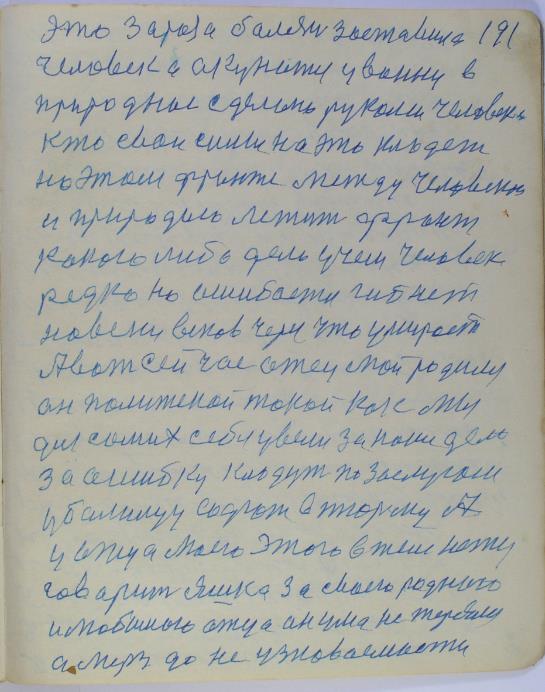 это зараза балезн заставила 191
человека окунати у ванни в
природнае сделано руками человека
кто сваи сили на это кладет
на этом фронте между человеком
и природаю лежит фронт
какого либо дела учем человек
редко но ошибается гибнет
навеки веков чем что умирает
А вот сейчас отец мой родилу
он политекой такой как ми
для самих себя увели закони дела
за ошибку кладут по заслугам
у балницу содют в тюрму А
у отца моего этого втем нету
говарит яшка за своего родного
и любимого отца он ума не теряет
а мерз до не узноваемасти